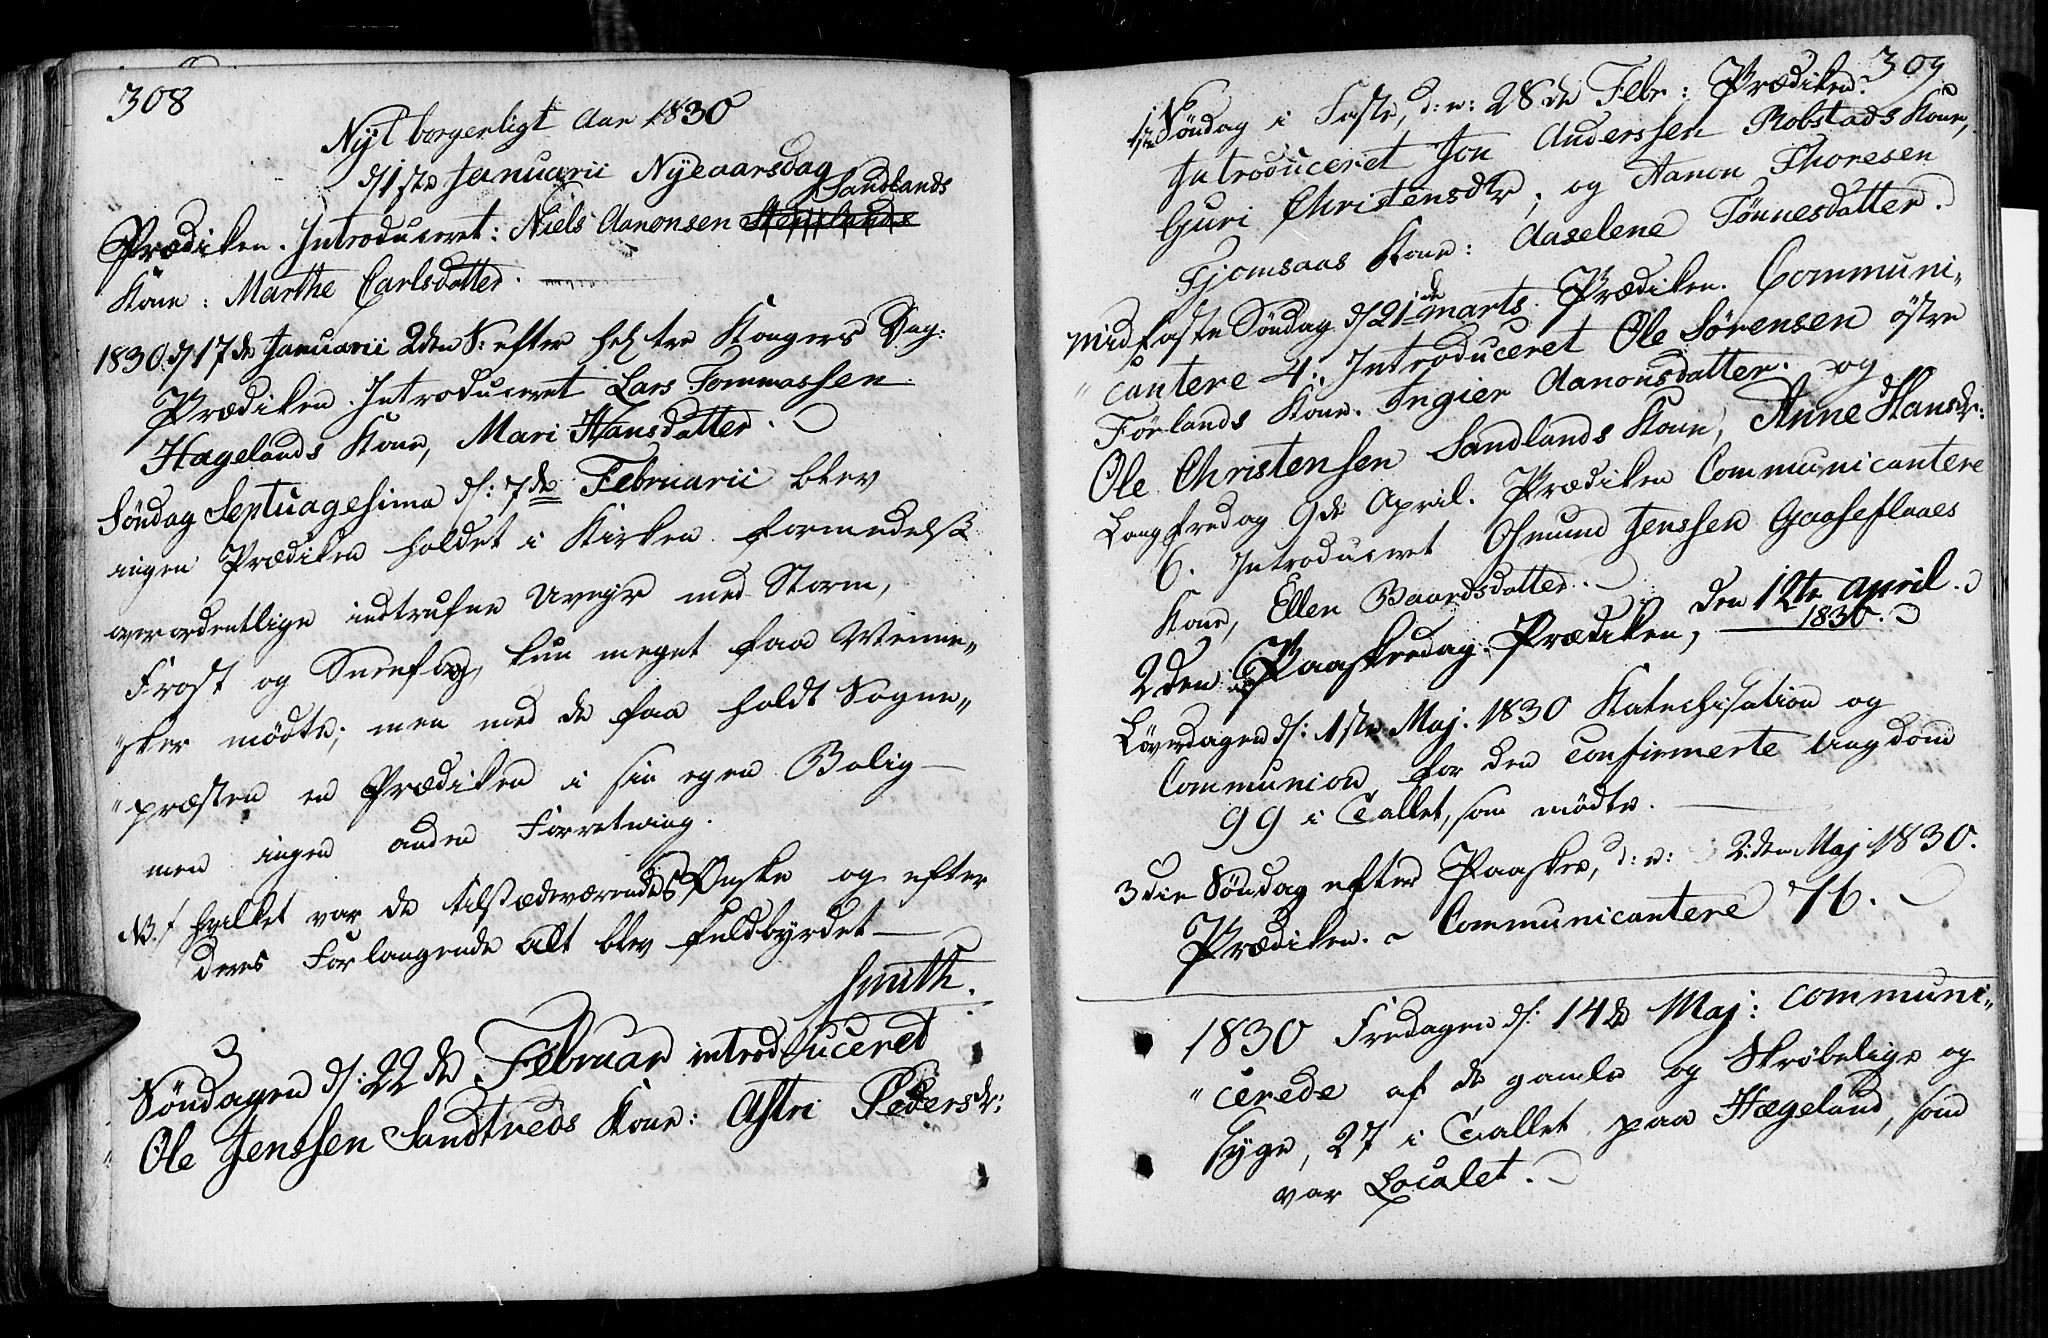 308
Nyt borgerligt Aar 1830
d/ 1ste Januarii Nyeaarsdag
Sandlands
Prædiken. Introduceret: Niels Aanonsen
Kone: Marthe Carlsdatter.
1830. d/ 17de Januarii 2den S: efter hel: tre Kongers Dag:
Prædiken. Introduceret Lars Tommassen
Hægelands Kone, Mari Hansdatter.
Søndag Septuagesima d/: 7de Februarii blev
ingen Prædiken holdet i Kirken formedelst
overordentlige indtrufne Uveyr med Storm,
Frost og Sneefog, kun meget faa Menne„
„sker mødte; men med de faa holdt Sogne„
„præsten en Prædiken i sin egen Bolig
men ingen anden Forretning.
NB. hvilket var de tilstædeværendes Ønske og efter
deres Forlangende alt blev fuldbyrdet
Smith.
Søndagen d/: 22de Februar introduceret
Ole Jenssen Sandtveds Kone: Astri Pedersdr:
309
1ste Søndag i Faste, d: e: 28de Febr: Prædiken.
Introduceret Jon Anderssen Robstads Kone,
Guri Christensdtr, og Aanon Thoresen
Fjomsaas Kone: Aaselene Tønnesdatter.
Midfaste Søndag d/ 21de Marts. Prædiken. Communi„
„cantere 4. Introduceret Ole Sørensen østre
Førlands Kone. Ingier Aanonsdatter. og
Ole Christensen Sandlands Kone, Anne Hansdr:
Langfredag 9de April. Prædiken Communicantere
6. Introduceret Osmund Jenssen Gaaseflaaes
Kone, Ellen Baardsdatter.
2den Paaskedag Prædiken, den 12te April.
1830.
Løverdagen d/: 1ste Maj. 1830 Katechisation og
Communion for den confirmerte Ungdom
99 i Tallet, som mødte.
3die Søndag efter Paaske, d: e: 2den Maj 1830.
Prædiken. Communicantere 76.
1830 Fredagen d/: 14de Maj: communi„
„cerede af de gamle og Skrøbelige og
Syge, 27 i Tallet paa Hægeland, som
var Localet.